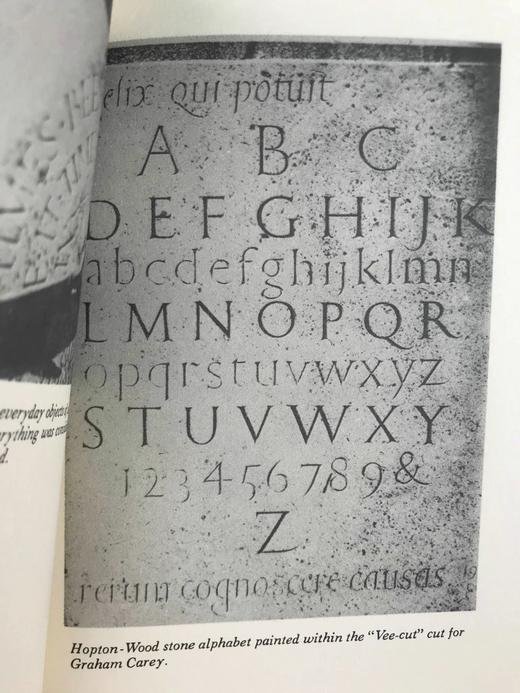 elix qui potuit
A B C
D E F G H I J K
abcdefghijklmn
L M N O P Q R
opqrstuvwxyz
S T U V W X Y
1 2 3 4 5 6 7 8 9 &
Z
rerum cognoscere causas 19
Hopton-Wood stone alphabet painted within the “Vee-cut” cut for
Graham Carey.
everyday objects
erything was
d.